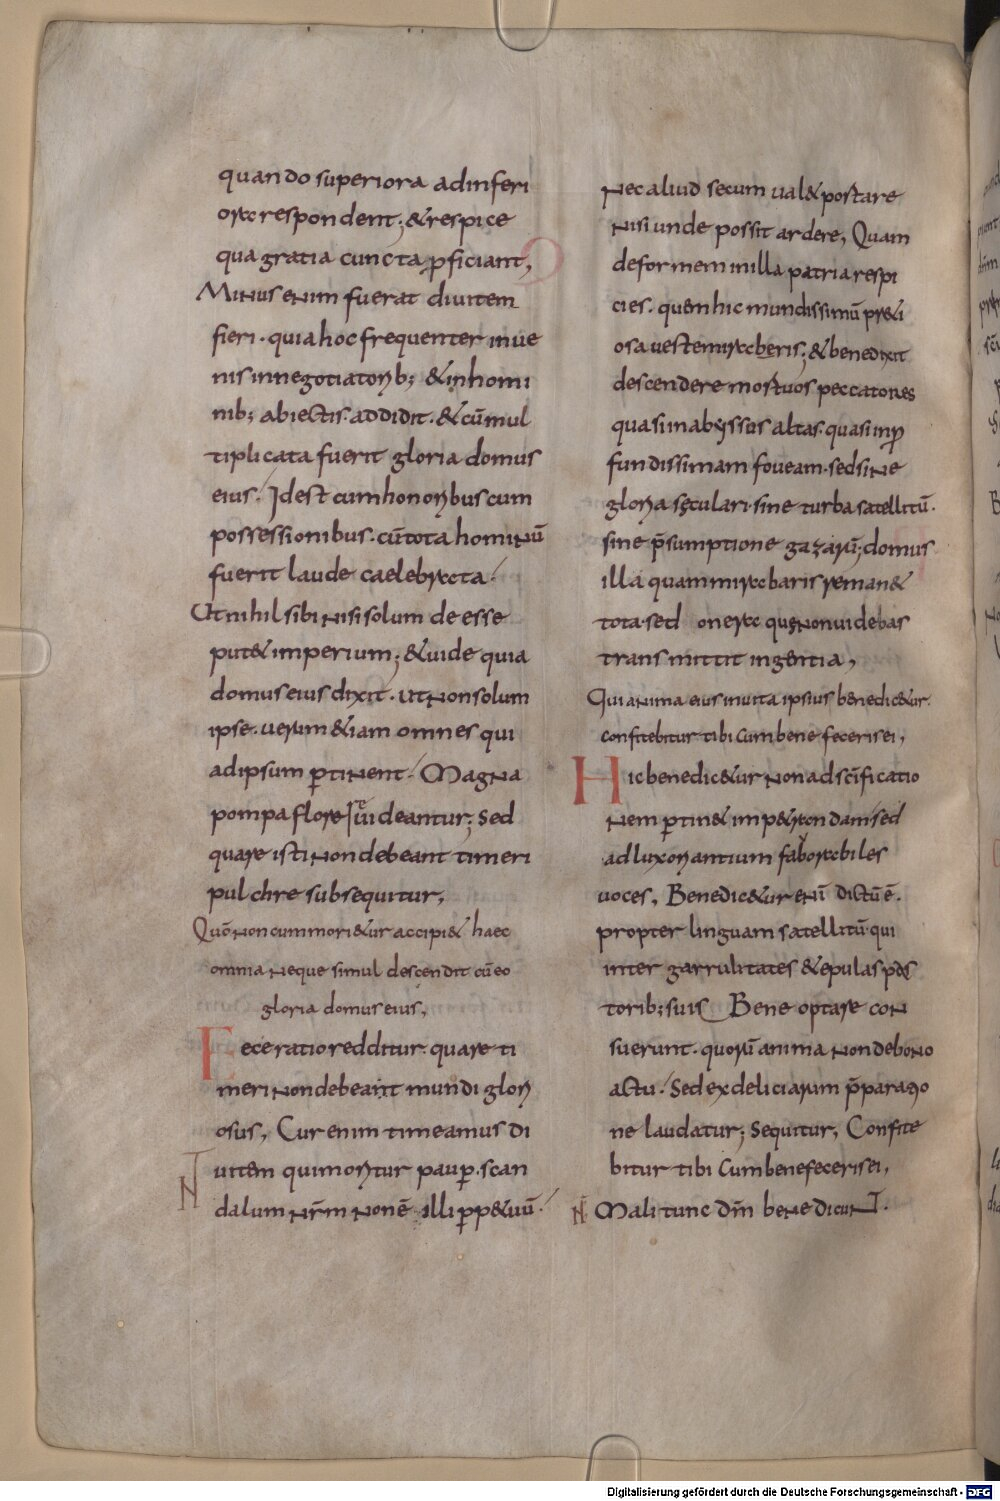 quando superiora adinferi
ora respondent; & respice
qua gratia cuncta ꝓficiant,
Minus enim fuerat diuitem
fieri · quia hoc frequenter inue
nis in negotiatorib; & in homi
nib; abiectis · addidit · & cū mul
tiplicata fuerit gloria domus
eius · Idest cum honoribus cum
possessionibus · cū tota hominū
fuerit laude caelebrata ·
Ut nihil sibi nisi solum deesse
put& imperium; & uide quia
domus eius dixit · ut non solum
ipse · uerum &iam omnes qui
ad ipsum ꝑtinent · Magna
pompa flore uideantur; Sed
quare isti non debeant timeri
pulchre subsequitur,
Quō non cum mori&ur accipi& haec
omnia neque simul descendit cū eo
gloria domus eius,
Ecce ratio redditur · quare ti
meri non debeant mundi glori
osus, Cur enim timeamus di
uitem qui moritur pauꝑ · scan
dalum nr̄m non ē illi ꝑp&uū ·
Nec aliud secum ual& postare
nisi unde possit ardere, Quam
deformem in illa patria respi
cies · quem hic mundissimū pr&i
osa ueste miraberis; & bene dixit
descendere mostuos peccatores
quasi in abyssus altas · quasi in ꝓ
fundissimam foueam · sed sine
gloria sęculari · sine turba satellitū ·
sine p̄sumptione gazarū; domus
illa quam mirabaris reman&
tota · sed onera quę non uidebas
transmittit ingentia,
Qui anima eius in uita ipsius benedic&ur
confitebitur tibi cum benefeceris ei,
Hic benedic&ur non ad sc̄ificatio
nem ꝑtin& imp&randam sed
ad luxoriantium fauorabiles
uoces, Benedic&ur enī dictū ē ·
propter linguam satellitū · qui
inter garrulitates & epulas pas
torib; suis Bene optare con
suerunt · quorū anima non de bono
actu · Sed ex deliciarum p̄paratio
ne laudatur; Sequitur, Confite
bitur tibi cum benefeceris ei,
Mali tunc dn̄m benedicunt ·
Digitalisierung gefördert durch die Deutsche Forschungsgemeinschaft - DFG